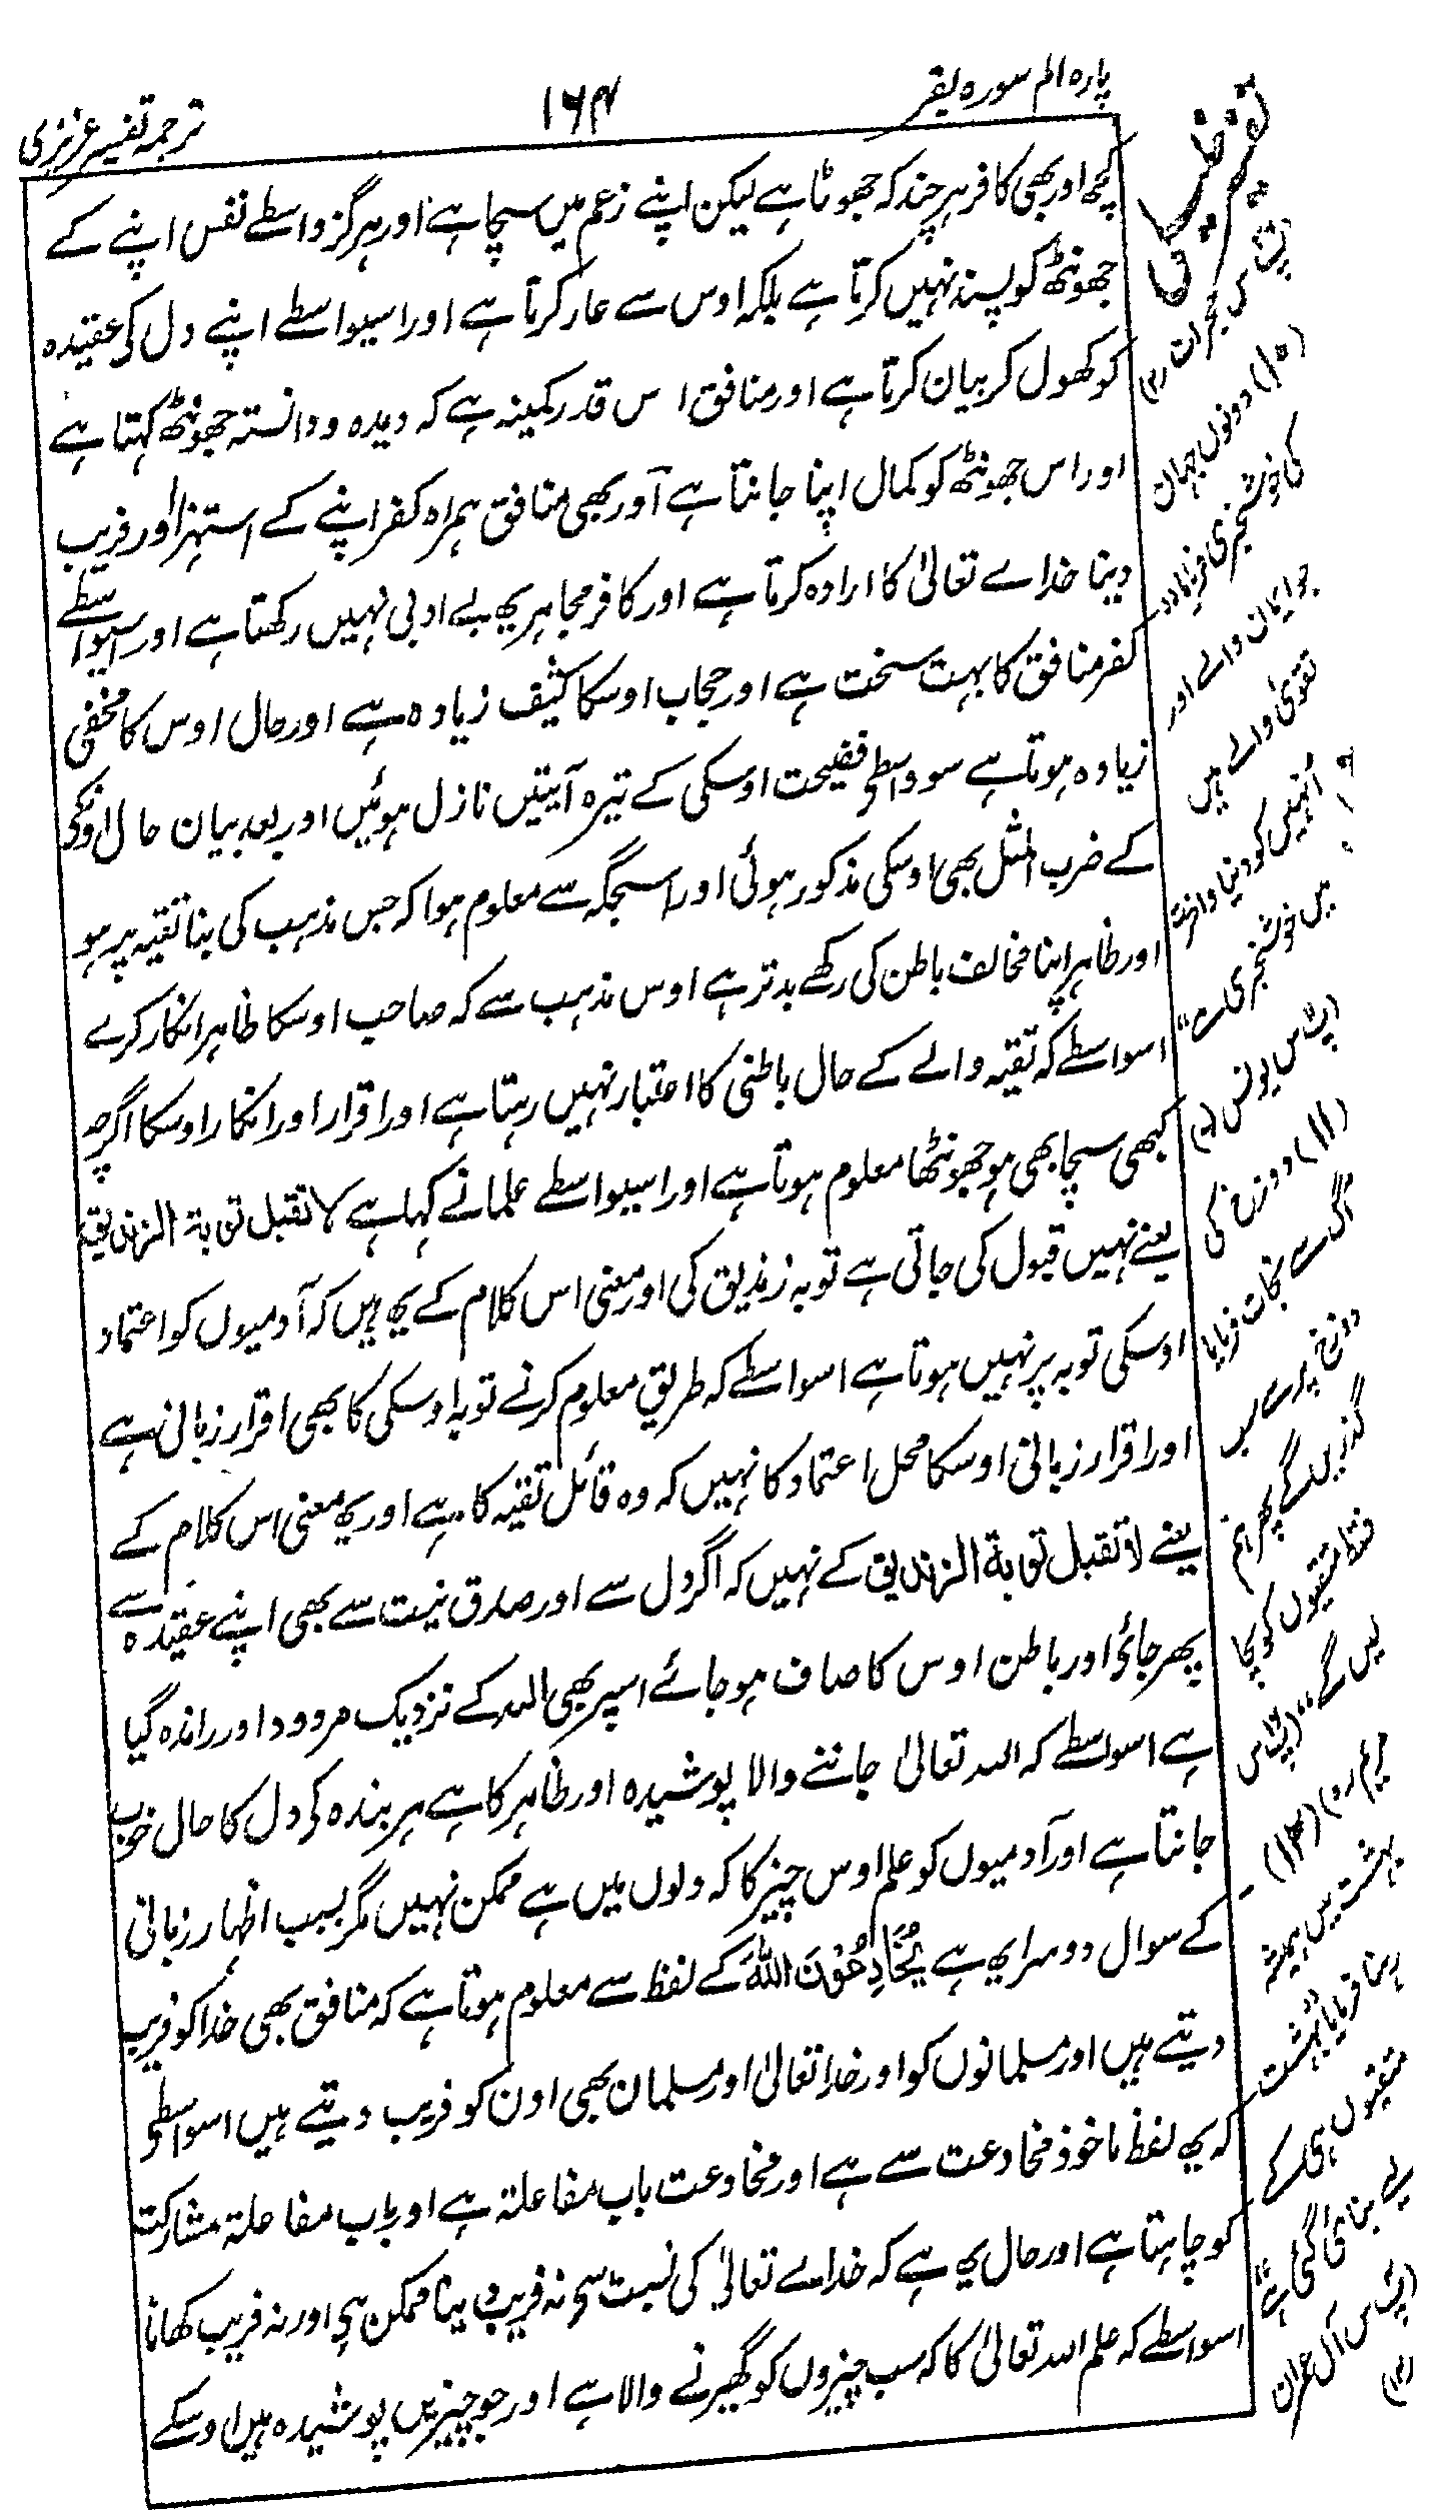 پاره الم سوره بقر
۱۶۴
ترجمہ تفسیر عزیزی
کچھ اور بھی کافر ہر چند کہ جھوٹا ہے لیکن اپنے زعم میں سچا ہے اور ہرگز واسطے نفس اپنے کے
جھونٹھ کو پسند نہیں کرتا ہے بلکہ اوس سے عار کرتا ہے اور اسیواسطے اپنے دل کی عقیدہ
کو کھول کر بیان کرتا ہے اور منافق اس قدر کمینہ ہے کہ دیدہ و دانستہ جھونٹھ کہتا ہے
اور اس جھونٹھ کو کمال اپنا جانتا ہے آور بھی منافق ہمراہ کفر اپنے کے استہزا اور فریب
دینا خداے تعالیٰ کا ارادہ کرتا ہے اور کافر مجاہر یہ بے ادبی نہیں رکھتا ہے اور اسیواسطے
کفر منافق کا بہت سخت ہے اور حجاب اوسکا کثیف زیادہ ہے اور حال اوس کا مخفی
زیادہ ہوتا ہے سو واسطے فضیحت اوسکی کے تیرہ آیتیں نازل ہوئیں اور بعد بیان حال اونکی
کے ضرب المثل بھی اوسکی مذکور ہوئی اور اسجگہ سے معلوم ہوا کہ جس مذہب کی بنا تقیہ پر ہو
اور ظاہر اپنا مخالف باطن کی رکھے بدتر ہے اوس مذہب سے کہ صاحب اوسکا ظاہر انکار کرے
اسواسطے کہ تقیہ والے کے حال باطنی کا اعتبار نہیں رہتا ہے اور اقرار اور انکار اوسکا اگرچہ
کبھی سچا بھی ہو جھونٹھا معلوم ہوتا ہے اور اسیواسطے علما نے کہا ہے لا تقبل توبۃ الزندیق
یعنے نہیں قبول کی جاتی ہے توبہ زندیق کی اور معنی اس کلام کے یہ ہیں کہ آدمیوں کو اعتماد
اوسکی توبہ پر نہیں ہوتا ہے اسواسطے کہ طریق معلوم کرنے توبہ اوسکی کا بھی اقرار زبانی ہے
اور اقرار زبانی اوسکا محل اعتماد کا نہیں کہ وہ قائل تقیہ کا ہے اور یہ معنی اس کلام کے
یعنے لا تقبل توبۃ الزندیق کے نہیں کہ اگر دل سے اور صدق نیت سے بھی اپنے عقیدہ سے
پھر جائے اور باطن اوس کا صاف ہو جائے اسپر بھی اللہ کے نزدیک مردود اور راندہ گیا
ہے اسواسطے کہ اللہ تعالیٰ جاننے والا پوشیدہ اور ظاہر کا ہے ہر بندہ کی دل کا حال خوب
جانتا ہے اور آدمیوں کو علم اوس چیز کا کہ دلوں میں ہے ممکن نہیں مگر بسبب اظہار زبانی
کے سوال دوسرا یہ ہے یُخَادِعُوْنَ اللّٰهَ کے لفظ سے معلوم ہوتا ہے کہ منافق بھی خدا کو فریب
دیتے ہیں اور مسلمانوں کو اور خدا تعالیٰ اور مسلمان بھی اون کو فریب دیتے ہیں اسواسطے
کہ یہ لفظ ماخوذ مخادعت سے ہے اور مخادعت باب مفاعلۃ ہے اور باب مفاعلۃ مشارکت
کو چاہتا ہے اور حال یہ ہے کہ خداے تعالیٰ کی نسبت سی نہ فریب دینا ممکن ہی اور نہ فریب کھانا
اسواسطے کہ علم اللہ تعالیٰ کا کہ سب چیزوں کو گھیرنے والا ہے اور جو چیزیں پوشیدہ ہیں اوسکے
(۱۰) دونوں جہان
کی خوشخبری فرمایا
جو ایمان والے اور
تقوی والے ہیں
انہیں کو دنیا و آخرت
میں خوشخبری ہے
(۱۱) دوزخ کی
آگ سے نجات فرمایا
گذریں گے پھر ہم
متقیوں کو بچا
لیں گے
(۱۲)
بہشت میں ہمیشہ
رہنا فرمایا بہشت
متقیوں ہی کے
لیے بنائی گئی ہے
آل عمران